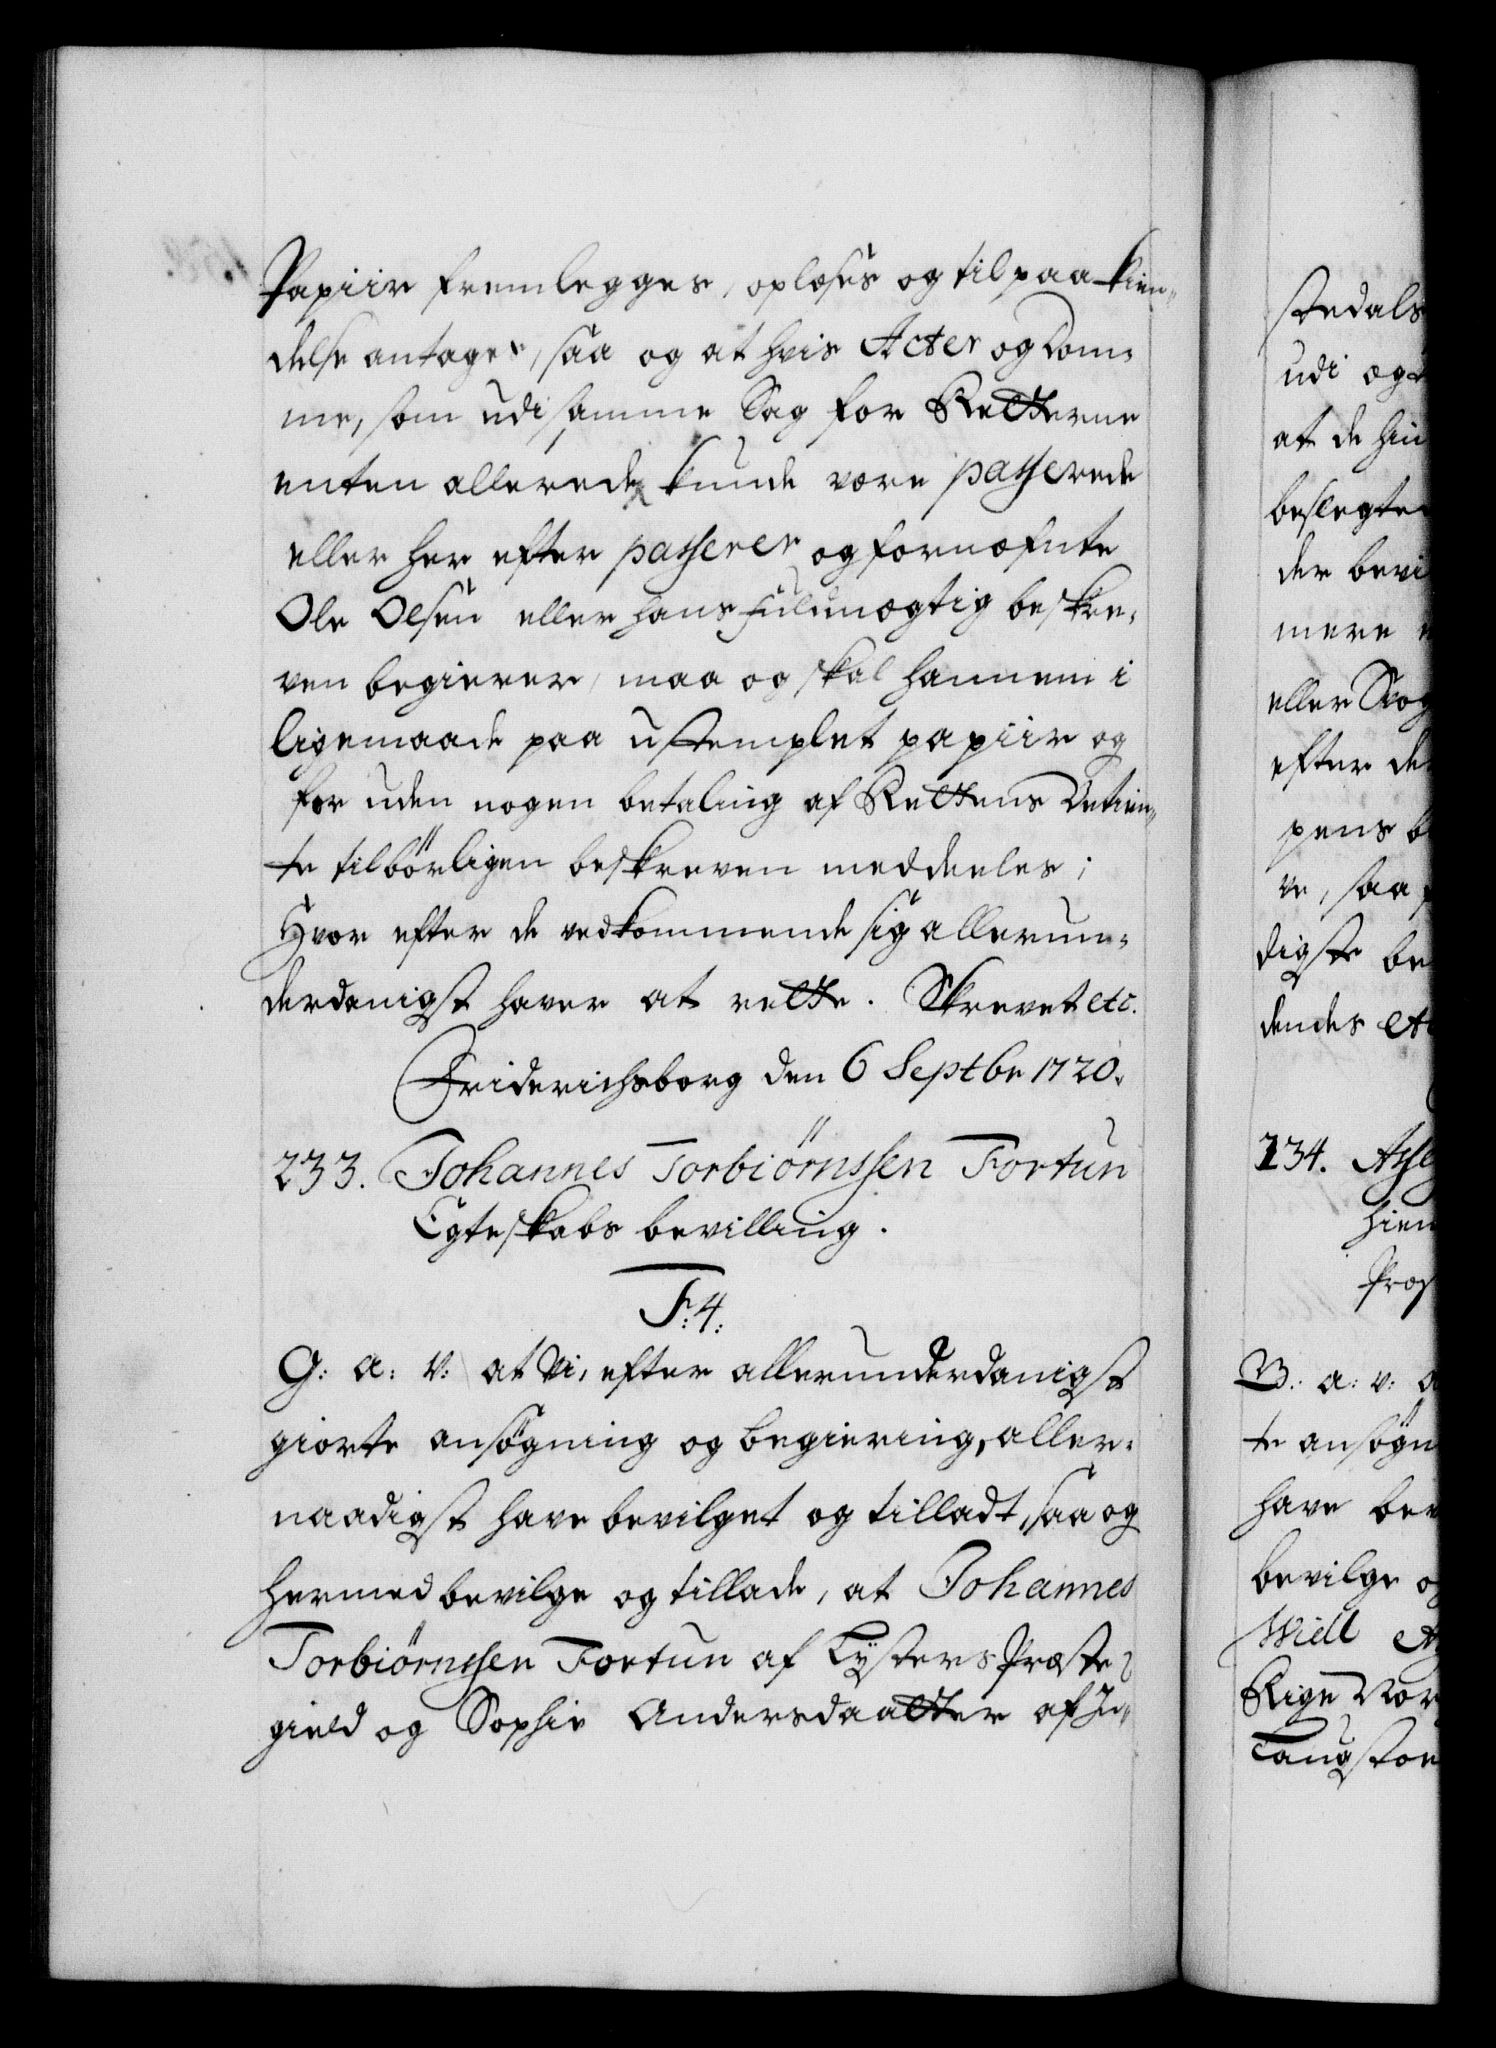 Papiir fremlegges, oplæses og til paakien-
delse antages, saa og at hvis Acter og Dom-
me, som udi samme Sag for Retterne
enten allerede kunde være passerede
eller her efter passerer og fornæfnte
Ole Olsen eller hans fuldmægtig beskre-
ven begierer, maa og skal hannem i
ligemaade paa ustemplet papiir og
for uden nogen betaling af Rettens Betien-
te tilbörligen beskreven meddeeles;
Hvor efter de vedkommende sig allerun-
derdanigst haver at rette. Skrevet etc.
Friderichsborg den 6 Septbr 1720.
233. Johannes Torbiörnssen Fortun
Egteskabs bevilling.
F: 4:
G: a: v: at Vi, efter allerunderdanigst
giorte ansögning og begiering, aller-
naadigst have bevilget og tilladt, saa og
hermed bevilge og tillade, at Johannes
Torbiörnssen Fortun af Lysters Præste-
gield og Sophie Andersdaatter af In-
stedals
udi egt
at de hin
beslegte
der bevi
mere
eller Skog
efter de
pens b
ve, saa
digste be
dendes etc
234. Asse
hien
Præs
B: a: v: a
te ansögn
have bev
bevilge og
Niell A
Rige Nor
Laugstoe